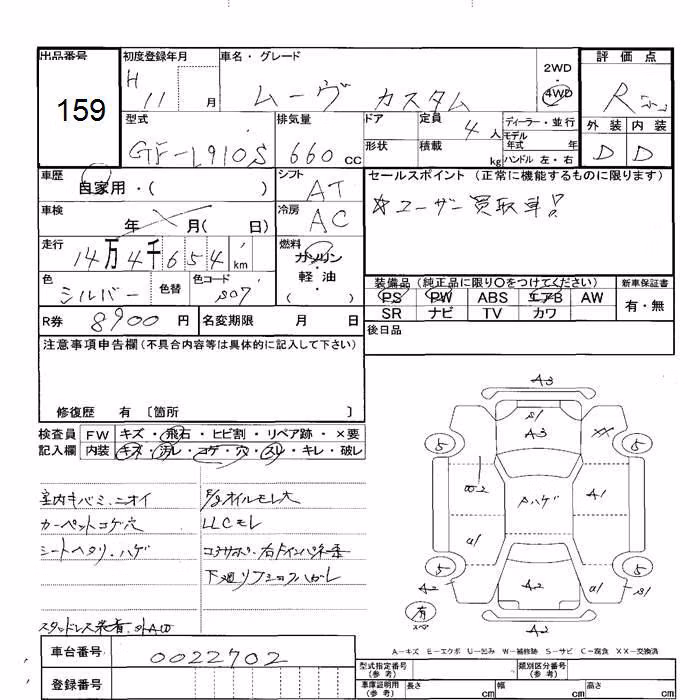 出品番号
159
初度登録年月
H 11 月
車名・グレード
ムーヴ カスタム
2WD
4WD
評価点
R
外装 内装
D D
型式
GF-L910S
排気量
660 cc
ドア
形状
定員
4 人
積載
kg
ディーラー・並行
モデル年式 年
ハンドル 左・右
車歴
自家用・( )
シフト
AT
セールスポイント (正常に機能するものに限ります)
☆ユーザー買取車!
車検
年 月( 日)
冷房
AC
走行
14万4千654 km
燃料
ガソリン・軽油
( )
色
シルバー
色替
色コード
S07
装備品 (純正品に限り〇をつけてください)
PS PW ABS エアB AW
SR ナビ TV カワ
新車保証書
有・無
R券 8900 円
名変期限 月 日
後日品
注意事項申告欄 (不具合内容等は具体的に記入して下さい)
修復歴 有 〔箇所 〕
検査員記入欄
FW キズ・飛石・ヒビ割・リペア跡・×要
内装 キズ・汚レ・コゲ・穴・スレ・キレ・破レ
室内キバミ、ニオイ
カーペットコゲ穴
シートヘタリ・ハゲ
スタッドレス装着
E/gオイルモレ大
LLCモレ
A3
S1
A3
XX
5
5
A1
ハゲ
a1
5
5
A2
A2
a1
S1
有
スペア
A2
A－キズ E－エクボ U－凹み W－補修跡 S－サビ C－腐食 XX－交換済
車台番号
0022702
登録番号
型式指定番号
(参考)
類別区分番号
(参考)
車庫証明用
(参考)
長さ cm
幅 cm
高さ cm